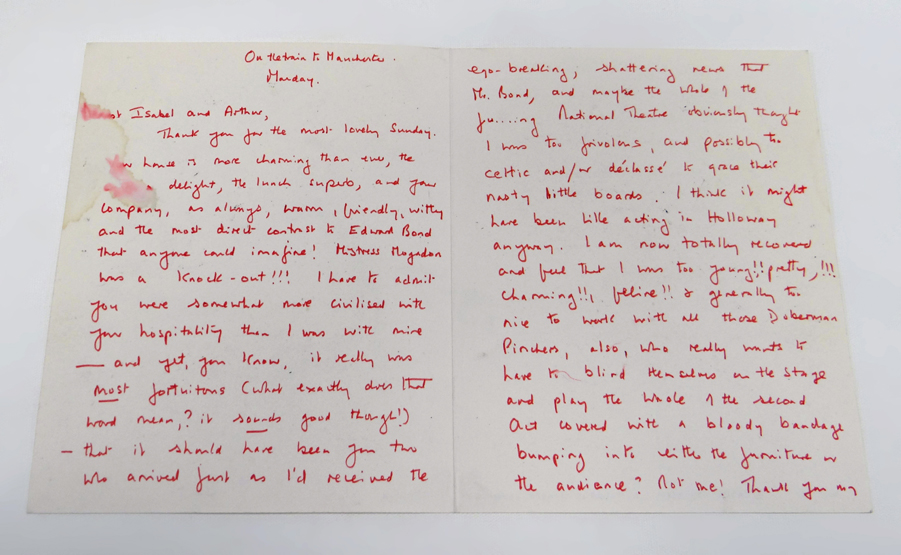 On the train to Manchester.
Monday.
Isabel and Arthur,
Thank you for the most lovely Sunday.
house is more charming than ever, the
delight, the lunch superb, and your
company, as always, warm, friendly, witty
and the most direct contrast to Edward Bond
that anyone could imagine! Mistress Mogadon
was a knock-out!!! I have to admit
you were somewhat more civilised with
your hospitality than I was with mine
— and yet, you know, it really was
most fortuitous (what exactly does that
word mean,? it sounds good though!)
– that it should have been you two
who arrived just as I'd received the
ego-breaking, shattering news that
Mr. Bond, and maybe the whole of the
fu.....ing National Theatre obviously thought
I was too frivolous, and possibly too
celtic and/or déclassé to grace their
nasty little boards. I think it might
have been like acting in Holloway
anyway. I am now totally recovered
and feel that I was too young!! pretty,!!!
charming!!, feline!! & generally too
nice to work with all those Doberman
Pinchers, also, who really wants to
have to blind themselves on the stage
and play the whole of the second
Act covered with a bloody bandage
bumping into either the furniture or
the audience? Not me! Thank you my